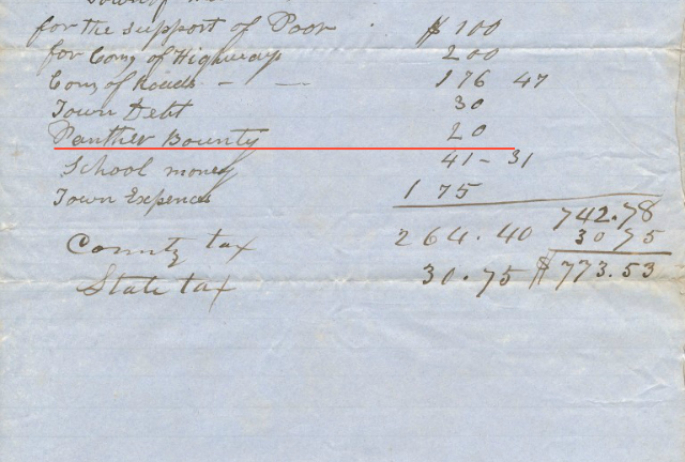 for the support of Poor $100
for Com of Highways 200
Com of Roads - - 176 47
Town Debt 30
Panther Bounty 20
School money 41-31
Town Expences 175
742.78
County tax 264.40 30 75
State tax 30.75 $773.53